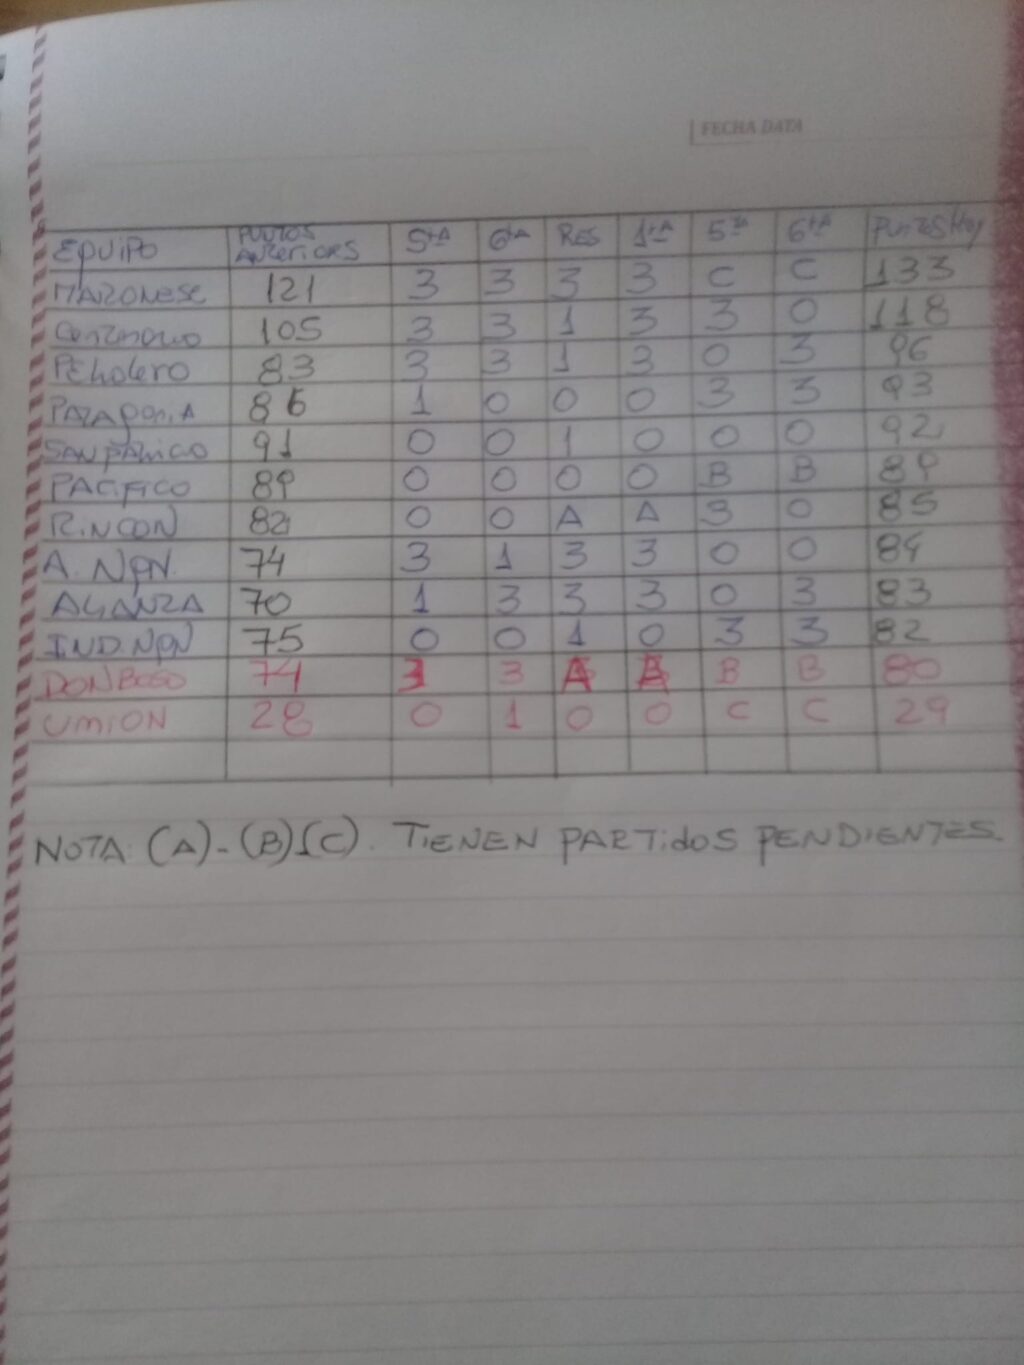 FECHA DATA
EQUIPO PUNTOS ANTERIORS 5TA 6TA RES 1RA 5TA 6TA PUNTOS HOY
MARONESE 121 3 3 3 3 C C 133
CENTENARIO 105 3 3 1 3 3 0 118
PEtROLERO 83 3 3 1 3 0 3 96
PATAGONIA 86 1 0 0 0 3 3 93
SAN PATRICIO 91 0 0 1 0 0 0 92
PACIFICO 89 0 0 0 0 B B 89
RINCON 82 0 0 A A 3 0 85
A. NQN. 74 3 1 3 3 0 0 84
ALIANZA 70 1 3 3 3 0 3 83
IND. NQN 75 0 0 1 0 3 3 82
DON BOSCO 74 3 3 A A B B 80
UNION 28 0 1 0 0 C C 29
NOTA: (A)-(B)Y(C). TIENEN PARTIdOS PENDIENTES.